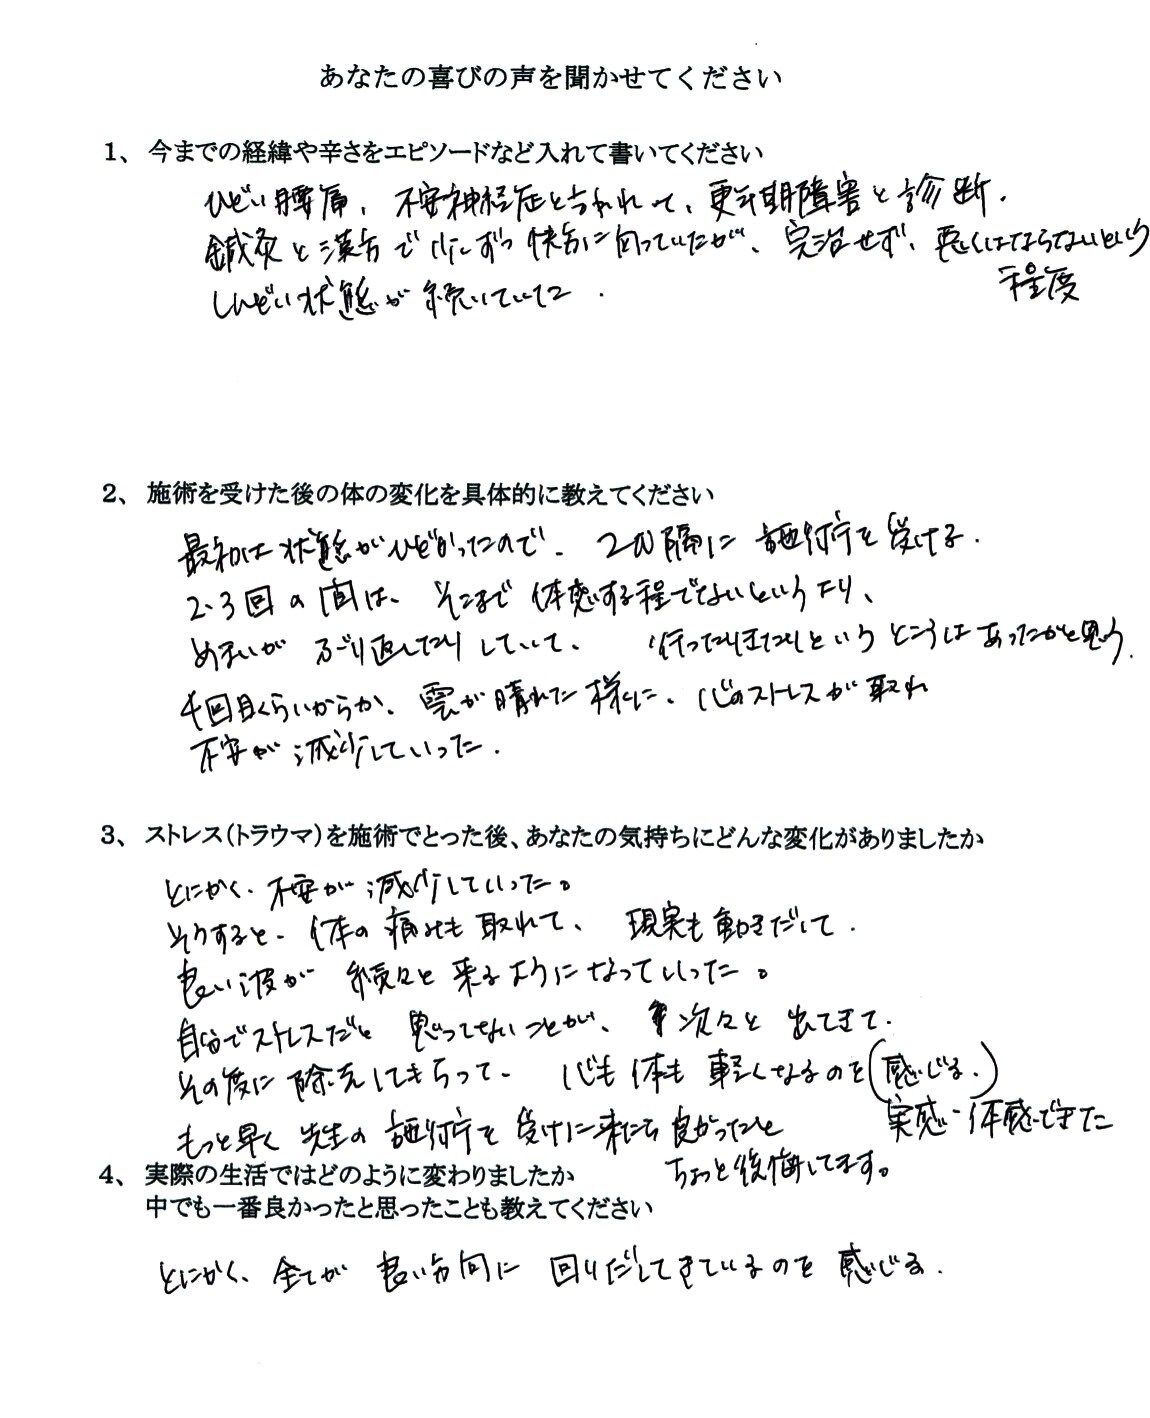 あなたの喜びの声を聞かせてください
1、今までの経緯や辛さをエピソードなど入れて書いてください
ひどい腰痛、不安神経症と言われて、更年期障害と診断.
鍼灸と漢方で少しずつ快方に向っていたが、完治せず、悪くはならないという
程度
しんどい状態が続いていた.
2、施術を受けた後の体の変化を具体的に教えてください
最初は状態がひどかったので、2W隔に施術を受ける.
2.3回の間は、そこまで体感する程でないというたり、
めまいがぶり返したりしていて、行ったりきたりというところはあったかと思う.
4回目くらいからか、雲が晴れた様に、心のストレスが取れ
不安が減少していった.
3、ストレス(トラウマ)を施術でとった後、あなたの気持ちにどんな変化がありましたか
とにかく、不安が減少していった。
そうすると、体の痛みも取れて、現実も動きだして.
良い波が続々と来るようになっていった。
自分でストレスだと思ってないことが、次々と出てきて.
その度に除去してもらって、心も体も軽くなるのを(感じる.)
実感・体感できた
もっと早く先生の施術を受けに来たら良かったと
ちょっと後悔してます。
4、実際の生活ではどのように変わりましたか
中でも一番良かったと思ったことも教えてください
とにかく、全てが良い方向に回りだしてきているのを感じる.